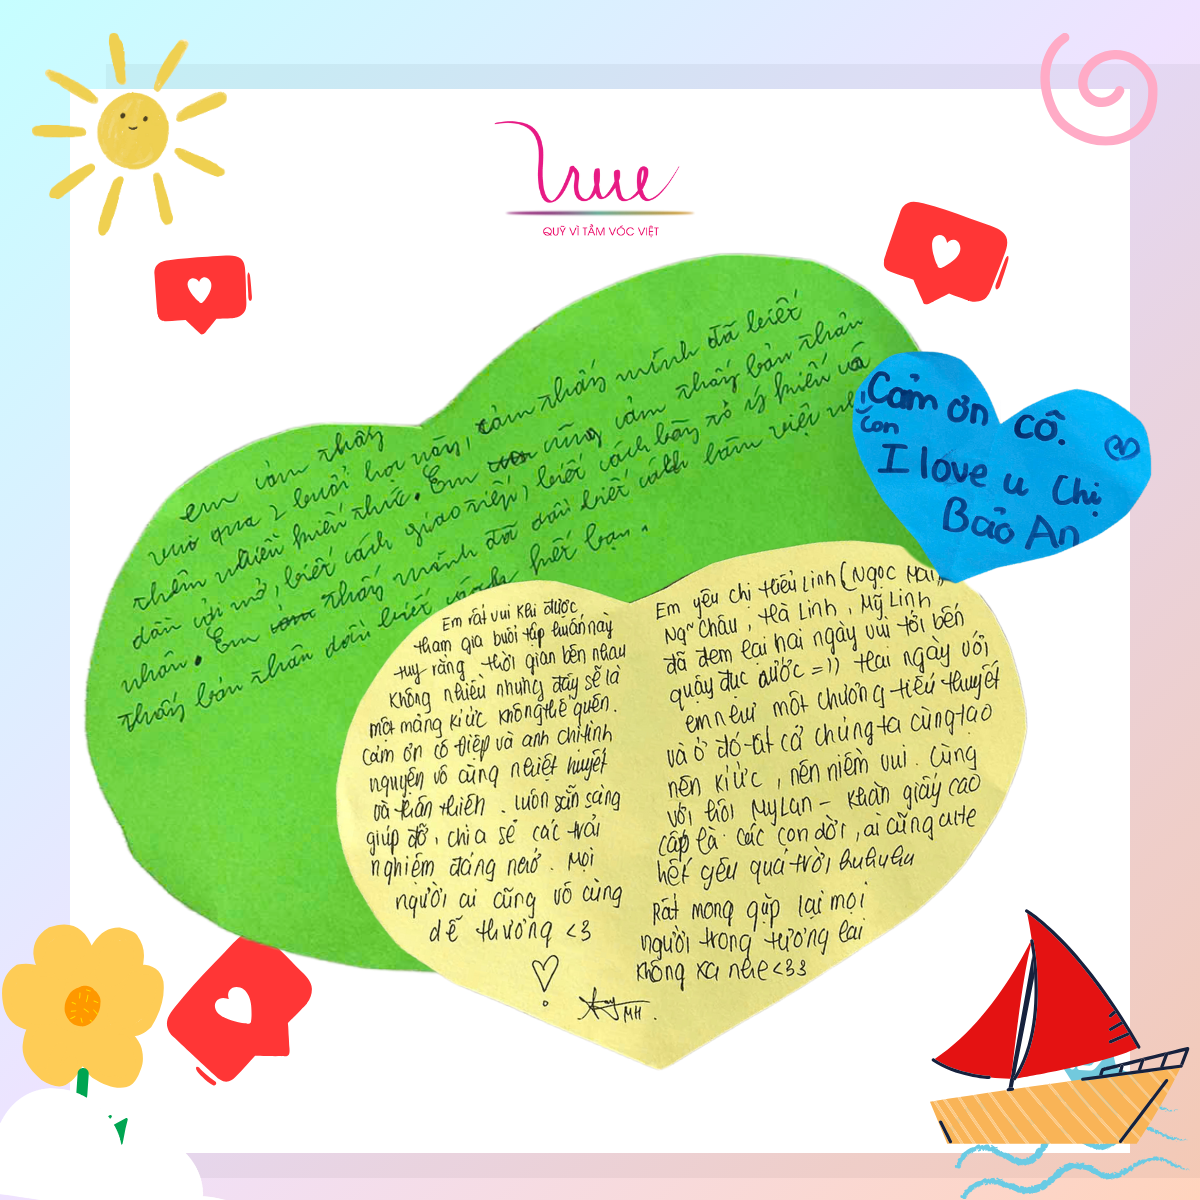 True
QUỸ VÌ TẦM VÓC VIỆT
em cảm thấy
vui qua 2 buổi học này, cảm thấy mình đã biết
thêm nhiều kiến thức. Em cũng cảm thấy bản thân
dần cởi mở, biết cách giao tiếp, biết cách bày tỏ ý kiến và
nhân. Em thấy mình đã dần biết cách làm việc
thấy bản thân dần biết hết bạn.
Cảm ơn cô.
Con
I love u Chị
Bảo An
Em rất vui khi được
tham gia buổi tập huấn này
tuy rằng thời gian bên nhau
không nhiều nhưng đây sẽ là
một mảng kí ức không thể quên.
Cảm ơn cô Điệp và anh chị tình
nguyện vô cùng nhiệt huyết
và thân thiện. Luôn sẵn sàng
giúp đỡ, chia sẻ các trải
nghiệm đáng nhớ. Mọi
người ai cũng vô cùng
dễ thương <3
MH.
Em yêu chị tiểu Linh (Ngọc Mai),
Ngọc Châu, Hà Linh, Mỹ Linh
đã đem lại hai ngày vui tới bến
quẩy đục nước =)) Hai ngày với
em như một chương tiểu thuyết
và ở đó tất cả chúng ta cùng tạo
nên kí ức, nên niềm vui. Cùng
với hội MyLan - khăn giấy cao
cấp là các con dời, ai cũng cute
hết yêu quá trời huhuhu
Rất mong gặp lại mọi
người trong tương lai
không xa nhé <33